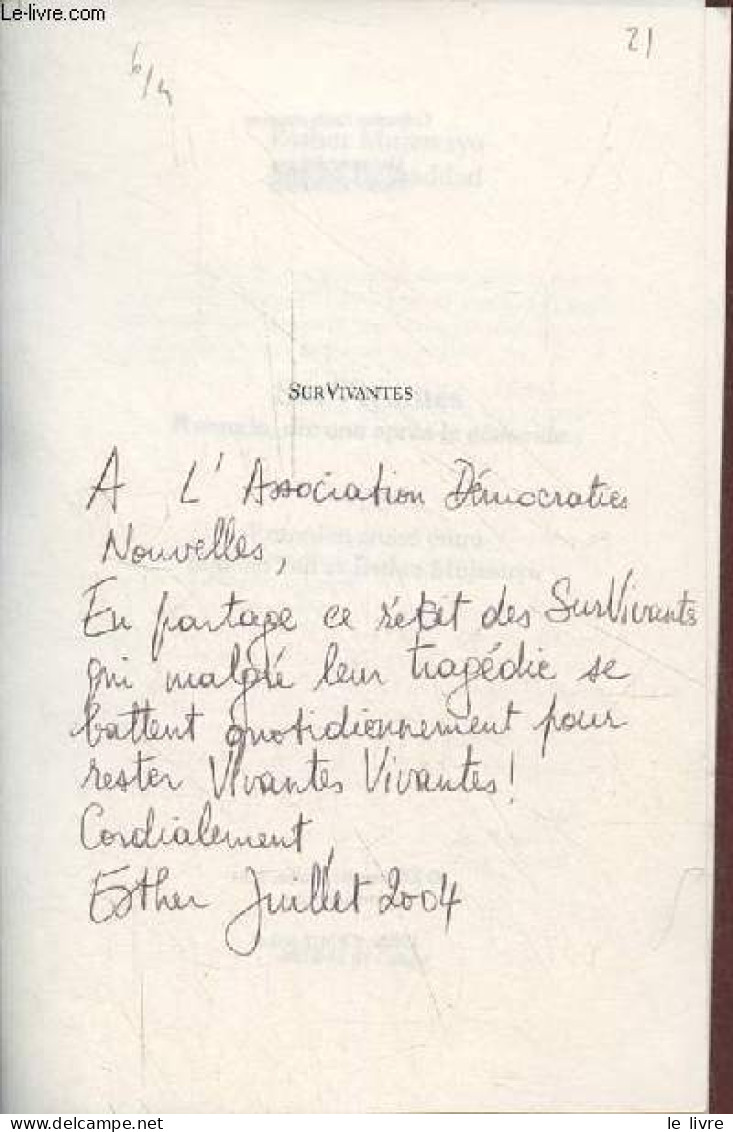 Le-livre.com
21
SURVIVANTES
A L'Association Démocraties
Nouvelles,
En partage ce récit des SurVivantes
qui malgré leur tragédie se
battent quotidiennement pour
rester Vivantes Vivantes!
Cordialement,
Esther Juillet 2004
le livre